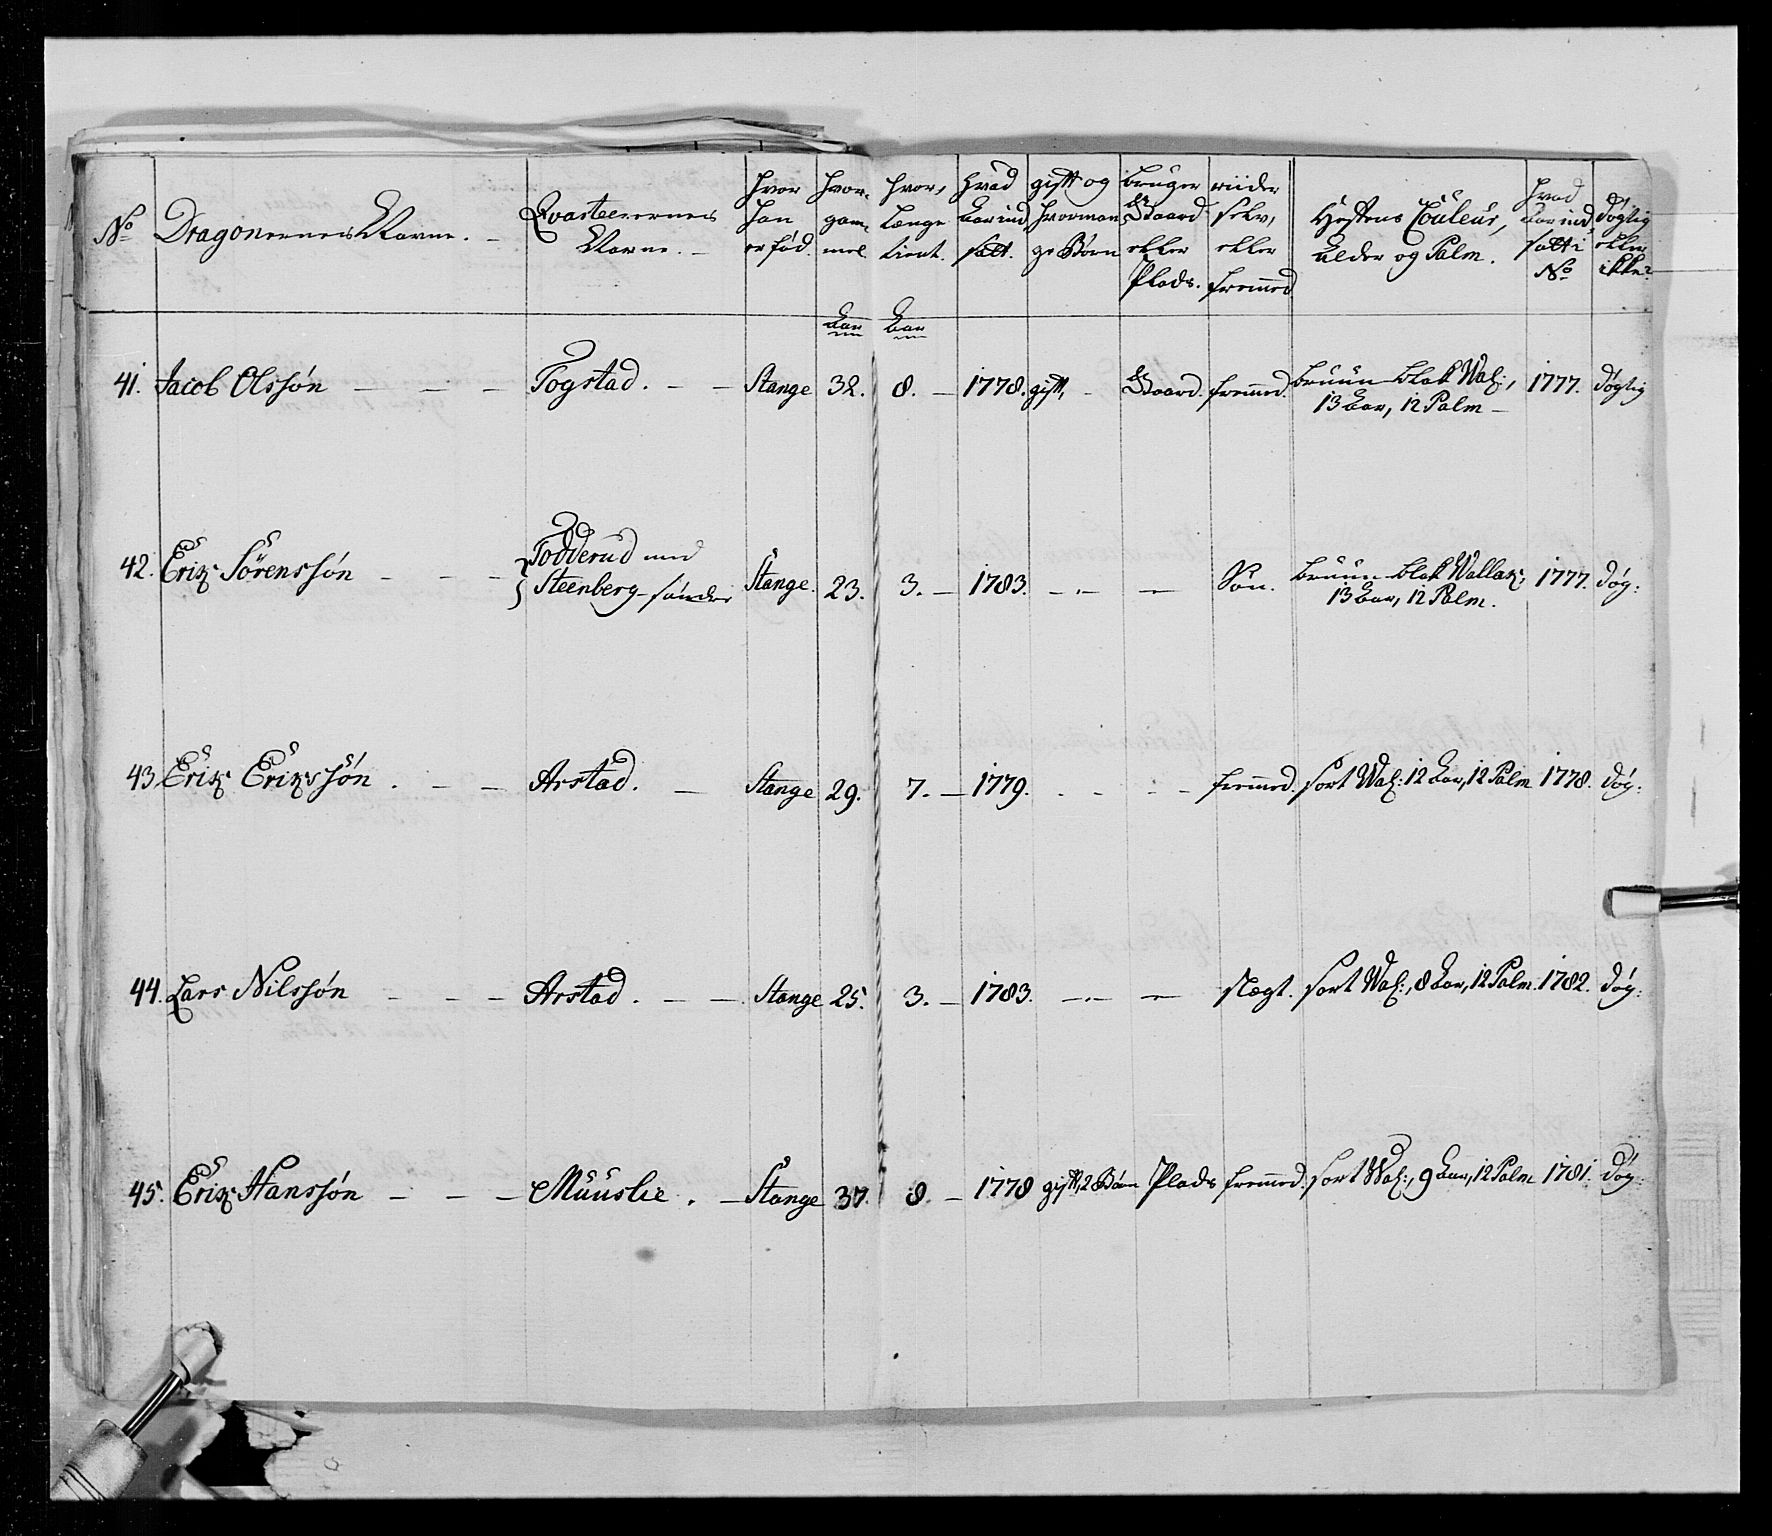 No
Dragonernes Navne.
Qvarteerernes
Navne.
Hvor
han
er fød.
Hvor-
gam-
mel
hvor-
længe
tient.
Hvad
Aar ind
satt.
gift og
hvorman
ge Børn
bruger
Gaard
eller
Plads.
riider
selv,
eller
fremed
Hestens Couleur,
Alder og Palm.
Hvad
Aar ind
satt i
No
Døgtig
eller
ikke?
Aar Aar
41. Jacob Olssøn — — — Togstad. — — Stange 32. 8. — 1778. gift, - Gaard. fremed. bruun-blak Wal:, 1777. døgtig
13 Aar, 12 Palm —
42. Erix Sörenssøn - - - Todderud med Stange. 23. 3. — 1783. —.— — Søn. bruun-blak Wallax; 1777. døg:
Steenberg-søndre 13 Aar, 12 Palm.
43 Erix Erixssøn . — — Arstad. — Stange 29. 7. — 1779. . . . — fremed. sort Wal: 12 Aar, 12 Palm 1778. døg:
44. Lars Nilssøn — — — Arstad. — — Stange 25. 3. — 1783. —.— — Slegt. sort Wal:, 8 Aar, 12 Palm. 1782. døg:
45. Erix Hanssøn — — — Muuslie . — Stange 37. 8. — 1778 gift, 2 Børn Plads fremed. sort Wal:, 9 Aar, 12 Palm 1781. døg: